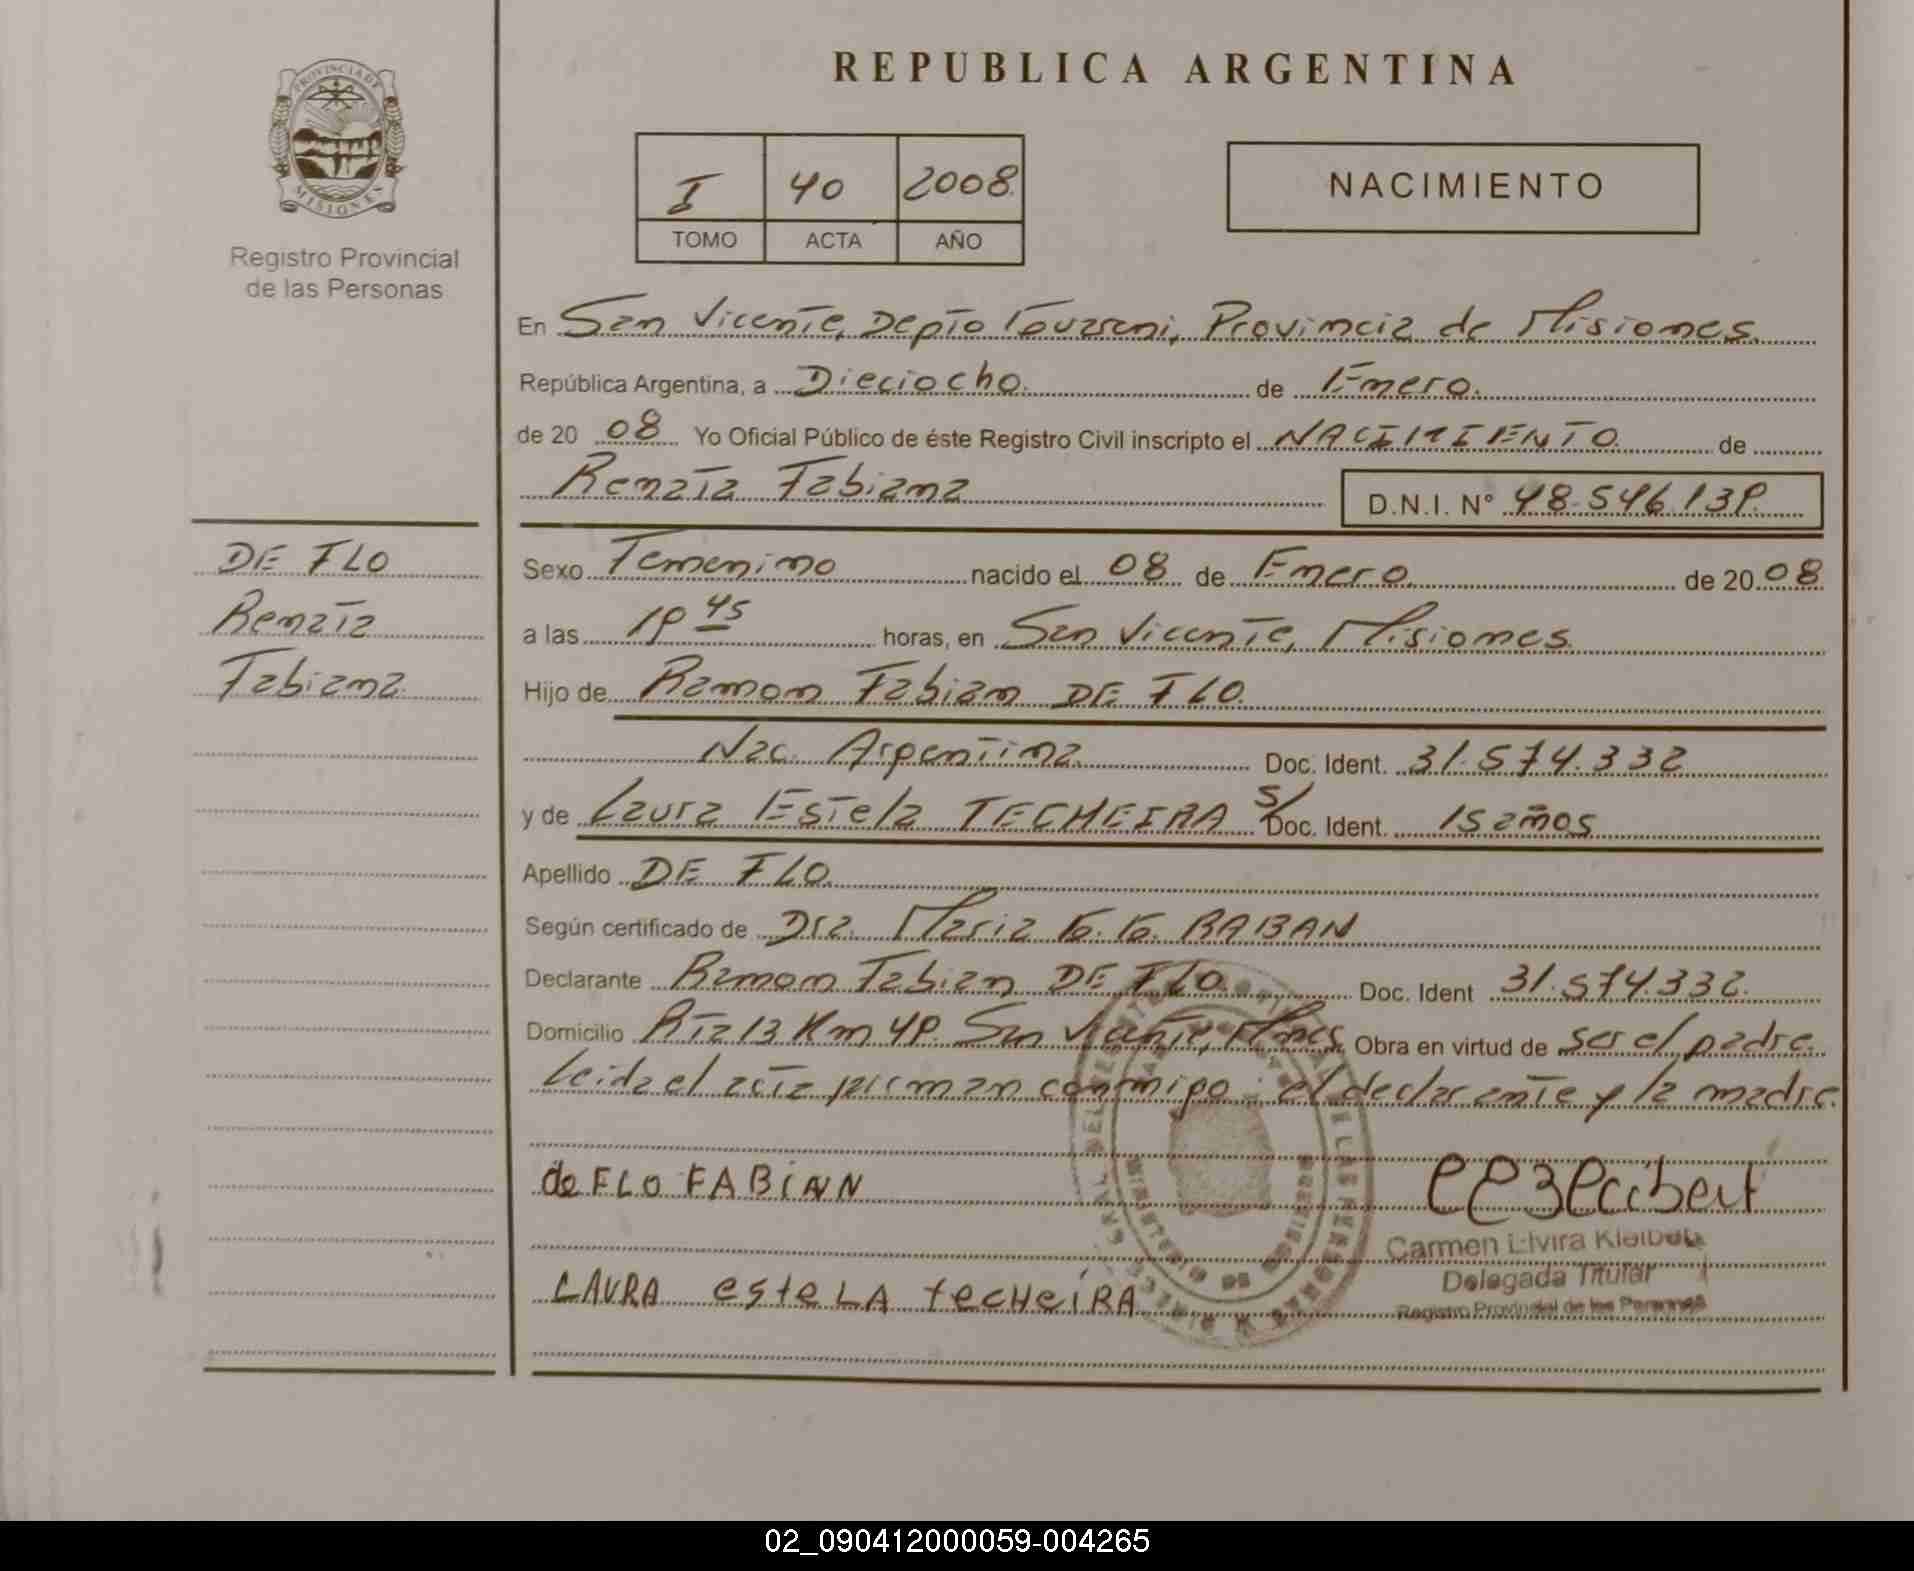 PROVINCIA DE
MISIONES
Registro Provincial
de las Personas
REPUBLICA ARGENTINA
I 40 2008
TOMO ACTA AÑO
NACIMIENTO
En San Vicente, Depto Guarani, Provincia de Misiones.
República Argentina, a Dieciocho. de Enero.
de 20 08 Yo Oficial Público de éste Registro Civil inscripto el NACIMIENTO de
Renata Fabiana
D.N.I. N° 48.546.139.
DE FLO
Renata
Fabiana
Sexo Femenino nacido el 08 de Enero de 20 08
a las 19 45 horas, en San Vicente, Misiones.
Hijo de Ramon Fabian DE FLO.
Nac. Argentina. Doc. Ident. 31.574.332
y de Laura Estela TECHEIRA S/ Doc. Ident. 15 años
Apellido DE FLO.
Según certificado de Dra. Maria G. G. RABAN
Declarante Ramon Fabian DE FLO. Doc. Ident 31.574.332.
Domicilio Rta 13 Km 49. San Vicente, Mnes Obra en virtud de ser el padre.
Leida el acta firman conmigo: el declarante y la madre.
de FLO FABIAN
LAURA esteLA tecHeíRA
Carmen Elvira Kleibert
Delegada Titular
Registro Provincial de las Personas
02_090412000059-004265